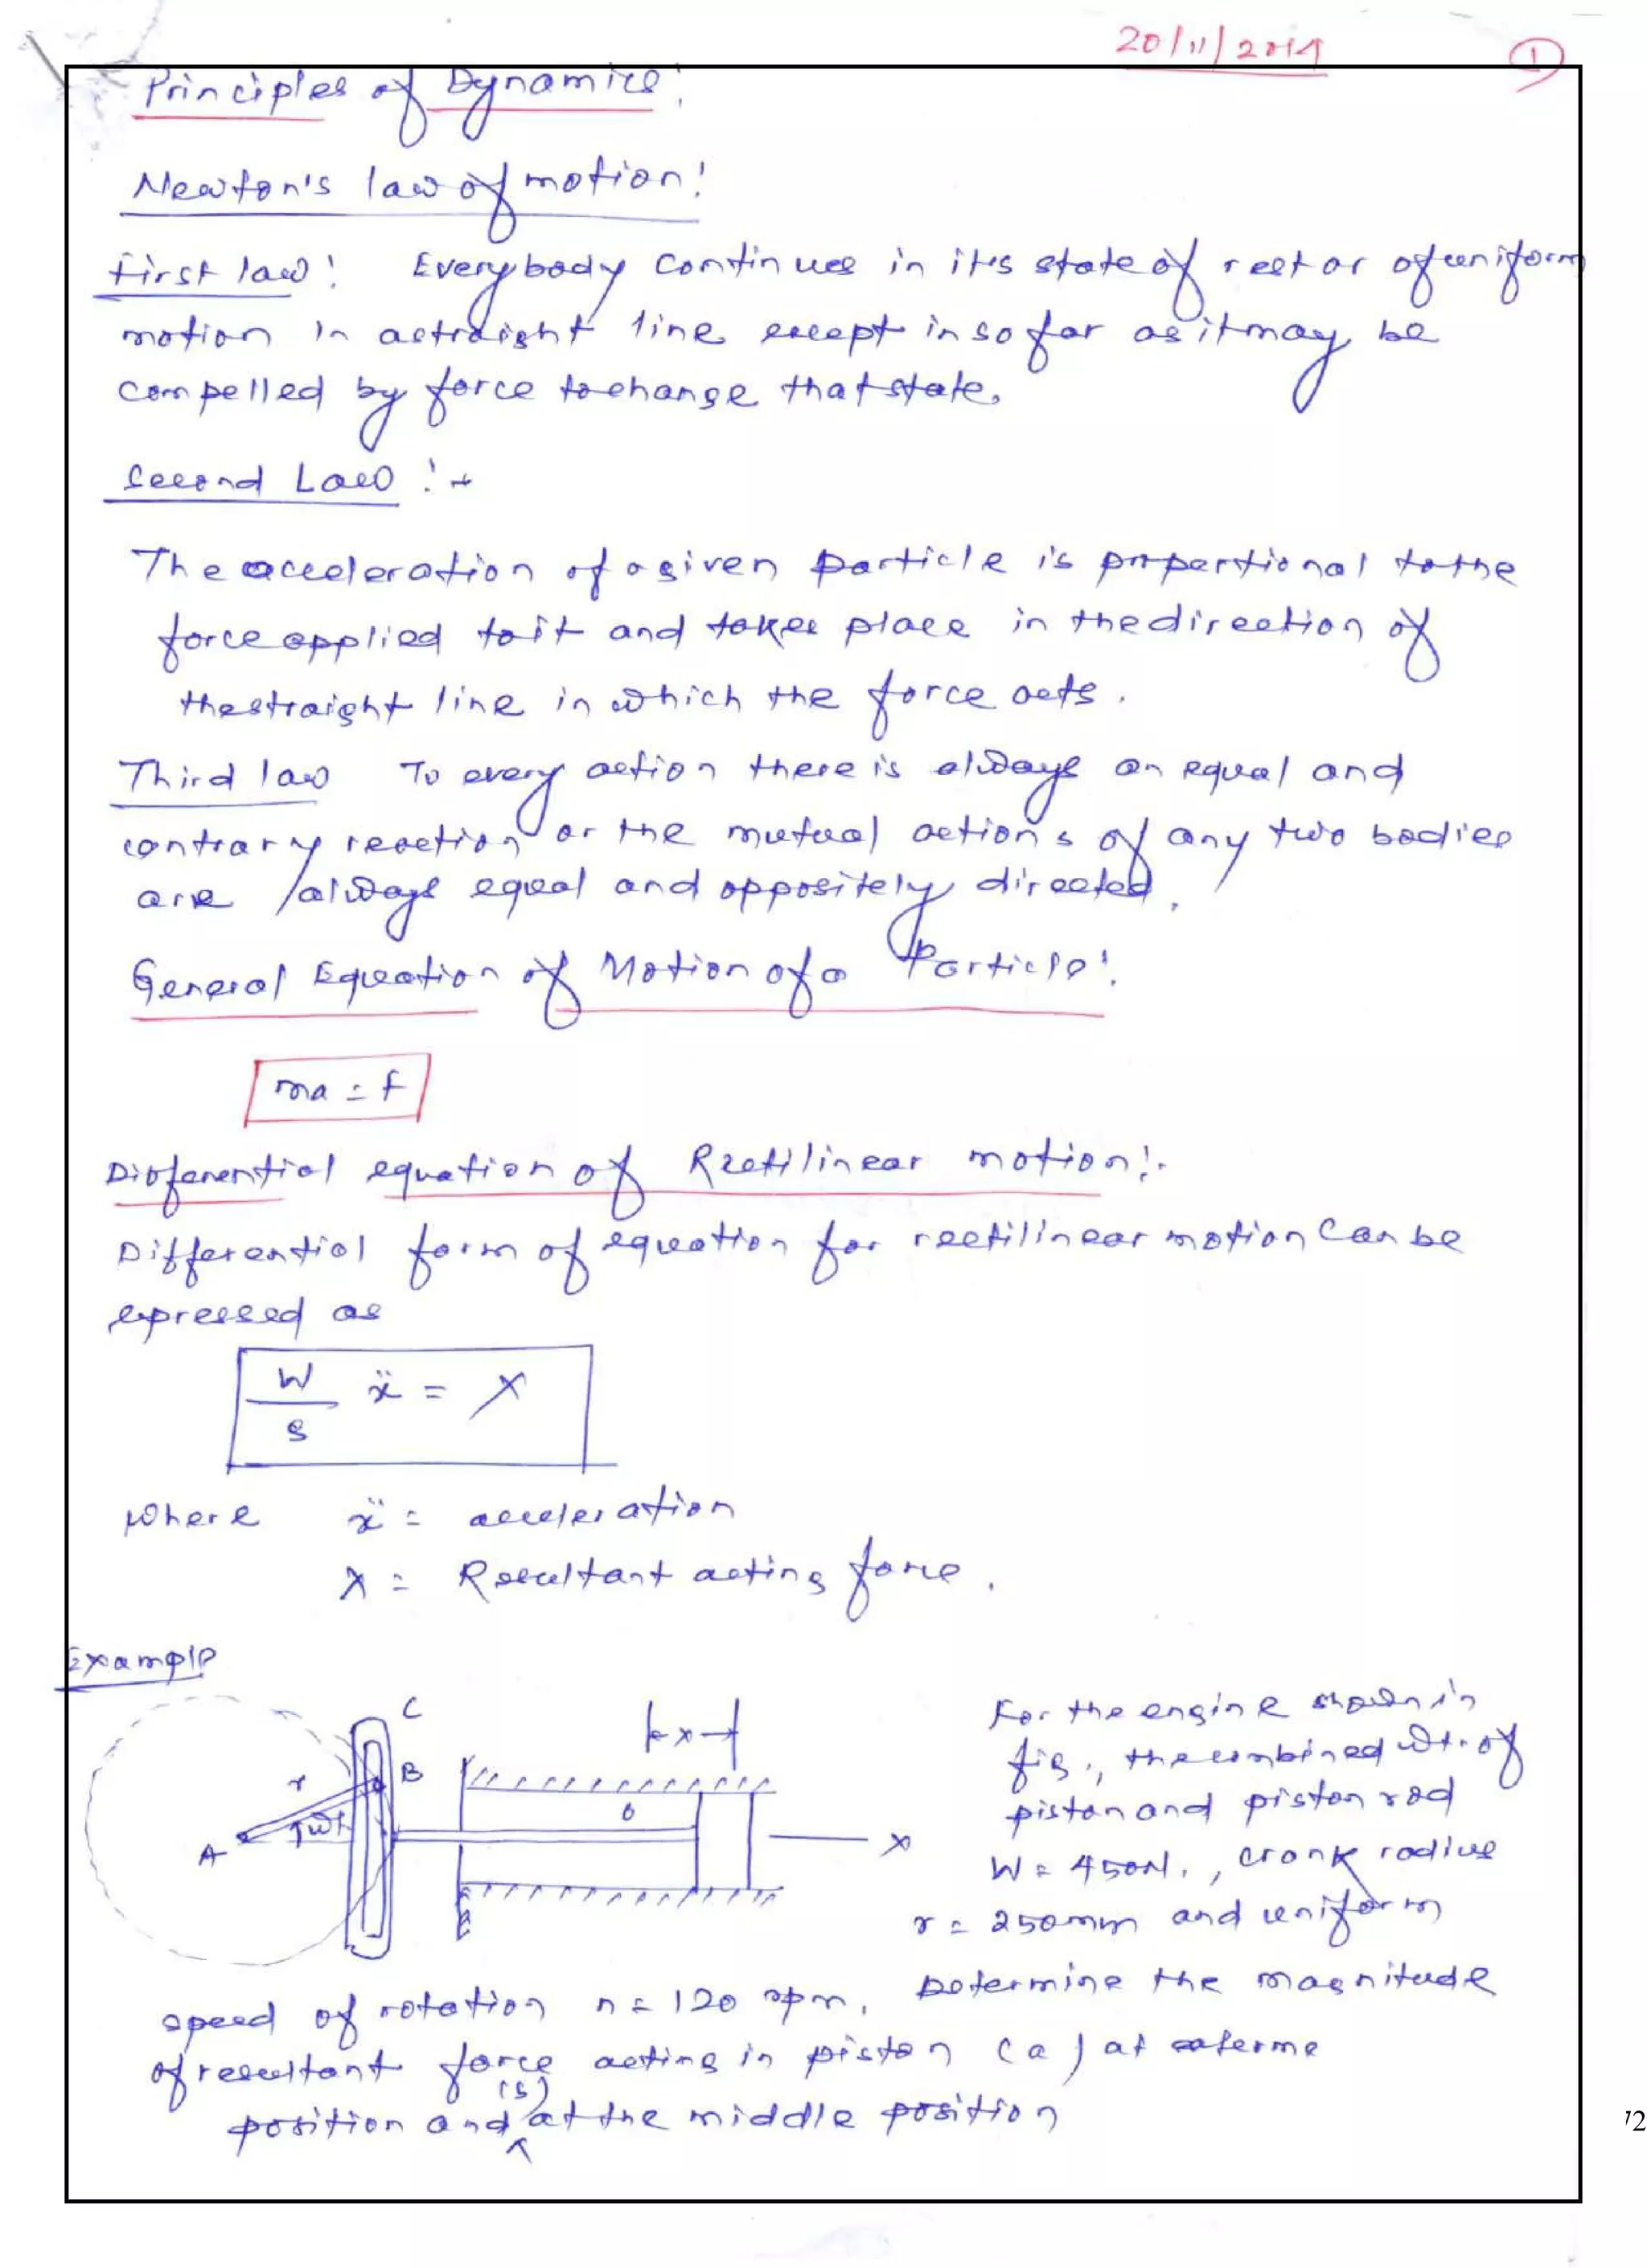 20/11/2014
1
Principles of Dynamics:
Newton's law of motion:
First law: Every body continues in it's state of rest or of uniform
motion in a straight line except in so far as it may be
compelled by force to change that state.
Second Law :-
The acceleration of a given particle is proportional to the
force applied to it and takes place in the direction of
the straight line in which the force acts.
Third law To every action there is always an equal and
contrary reaction or the mutual actions of any two bodies
are always equal and oppositely directed.
General Equation of Motion of a Particle:
ma = f
Differential equation of Rectilinear motion:-
Differential form of equation for rectilinear motion can be
expressed as
W/g ẍ = X
where ẍ = acceleration
X = Resultant acting force.
Example
C
B
r
ωt
A
x
O
x
For the engine shown in
fig., the combined wt. of
piston and piston rod
W = 450N., crank radius
r = 250mm and uniform
speed of rotation n = 120 rpm. Determine the magnitude
of resultant force acting in piston (a) at exterme
position and (b) at the middle position
72